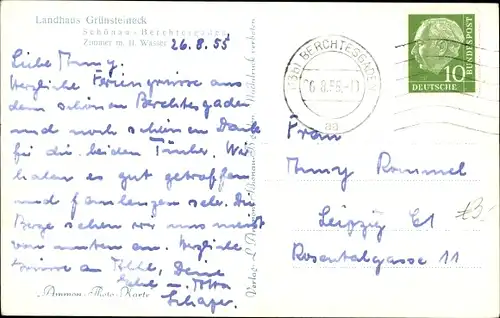 Landhaus Grünsteineck
Schönau - Berchtesgaden
Zimmer m. fl. Wasser
26.8.55
Liebe Amny.
Herzliche Feriengrüsse aus
dem schönen Berchtesgaden
und noch schönen Dank
für die beiden Wir
haben es gut getroffen
und faulenzen sehr. Die
Berge sehen wir uns meist
von unten an. Herzliche
Grüsse an Alle, Deine
u. Otto
Schäfer.
"Ammon-Photo-Karte"
Verlag L. Ammon, Schönau- Nachdruck verboten
(13b) BERCHTESGADEN
6.8.55.-11
aa
DEUTSCHE
BUNDESPOST
10
Frau
Amny Rommel
Leipzig C1
Rosentalgasse 11
£3.-